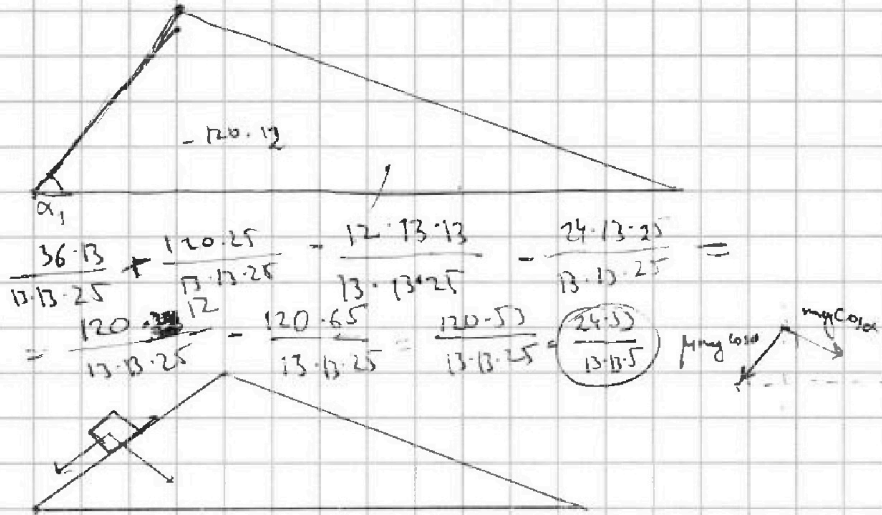 - 120 · 12
α₁
36·13/13·13·25 + 120·25/13·13·25 - 12·13·13/13·13·25 - 24·13·25/13·13·25 =
= 120· 12/13·13·25 - 120·65/13·13·25 = 120·53/13·13·25 = 24·53/13·13·5
μmg cosα mg cosα